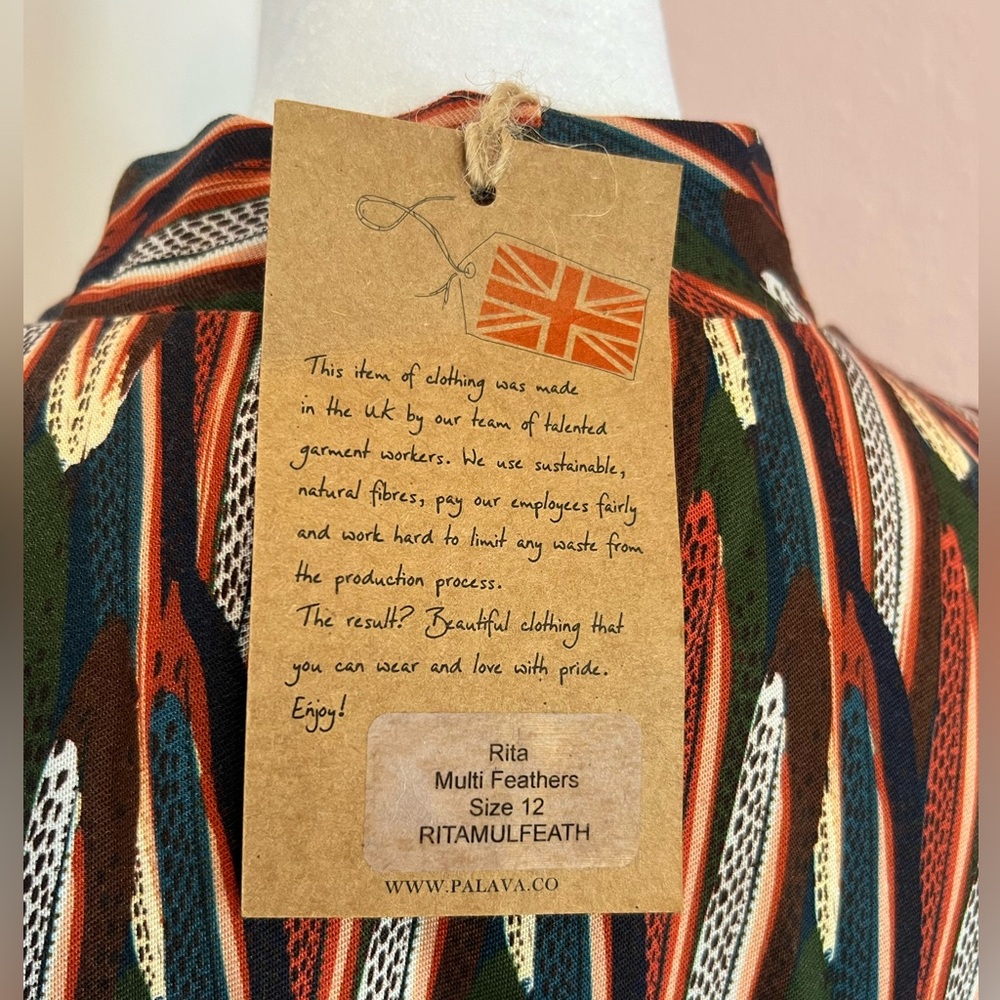 This item of clothing was made
in the UK by our team of talented
garment workers. We use sustainable,
natural fibres, pay our employees fairly
and work hard to limit any waste from
the production process.
The result? Beautiful clothing that
you can wear and love with pride.
Enjoy!
Rita
Multi Feathers
Size 12
RITAMULFEATH
WWW.PALAVA.CO